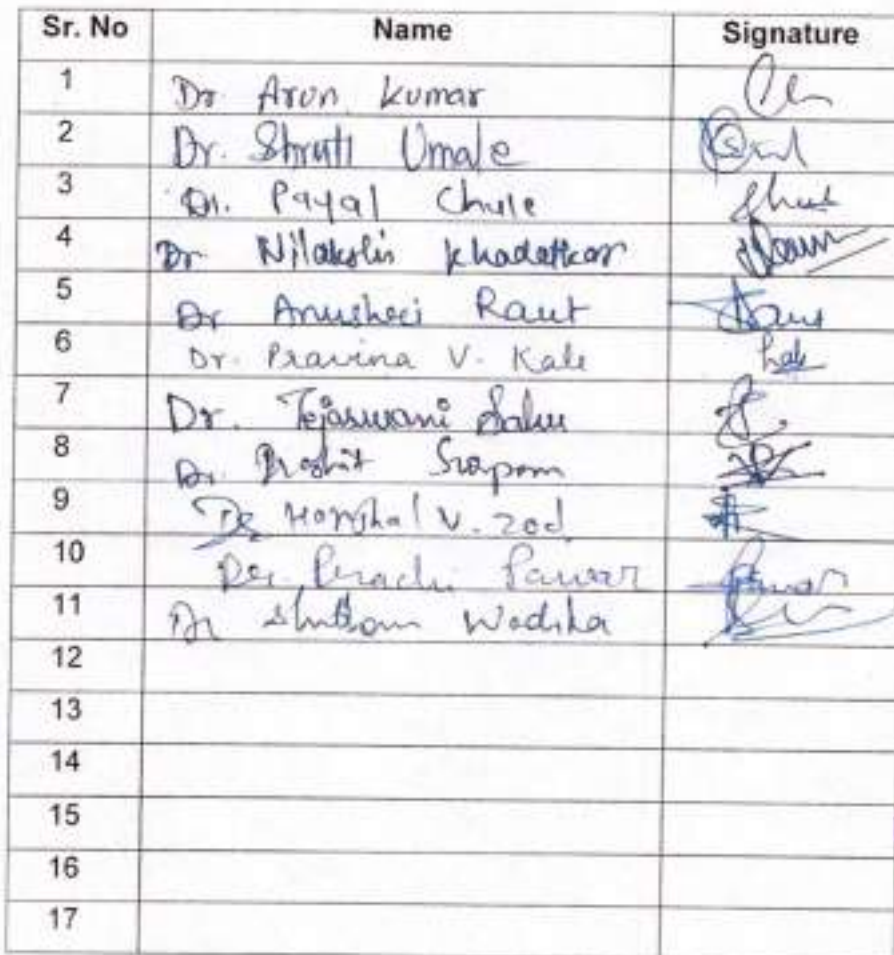 Sr. No Name Signature
1 Dr Arun Kumar
2 Dr. Shruti Umale
3 Dr. Payal Chule
4 Dr Nilakshi Khadatkar
5 Dr Anushree Raut
6 Dr. Pravina V. Kale
7 Dr. Tejaswani Sahu
8 Dr.
9 Dr V. Zod
10 Dr. Prachi Pawar
11 Dr Wadika
12
13
14
15
16
17